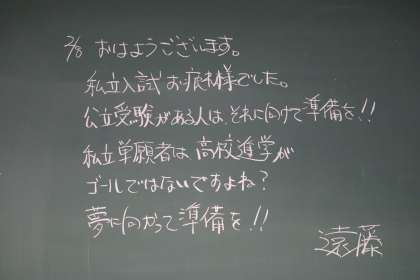 2/8 おはようございます。
私立入試お疲れ様でした。
公立受験がある人は、それに向けて準備を!!
私立単願者は高校進学が
ゴールではないですよね?
夢に向かって準備を!!
遠藤